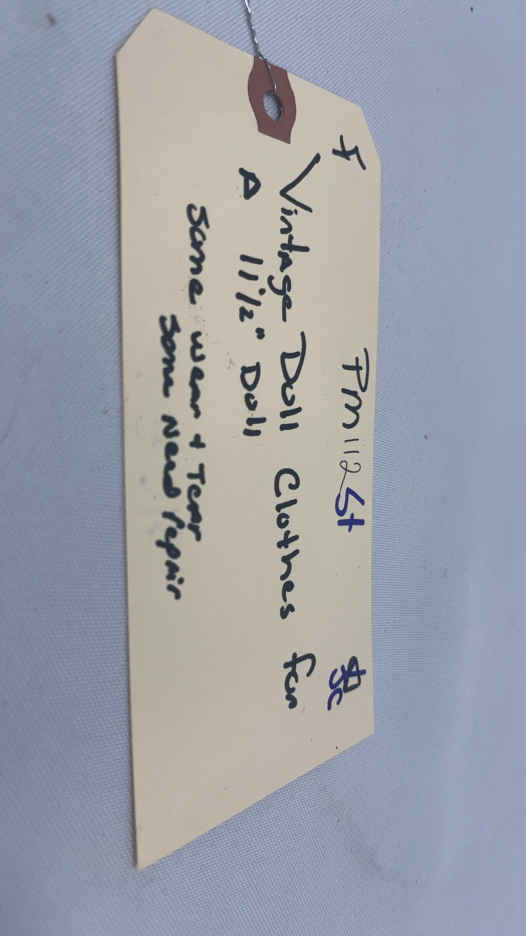 Pm112St
Vintage Doll Clothes for
A 11 1/2" Doll
Some wear + Tear
Some Need repair